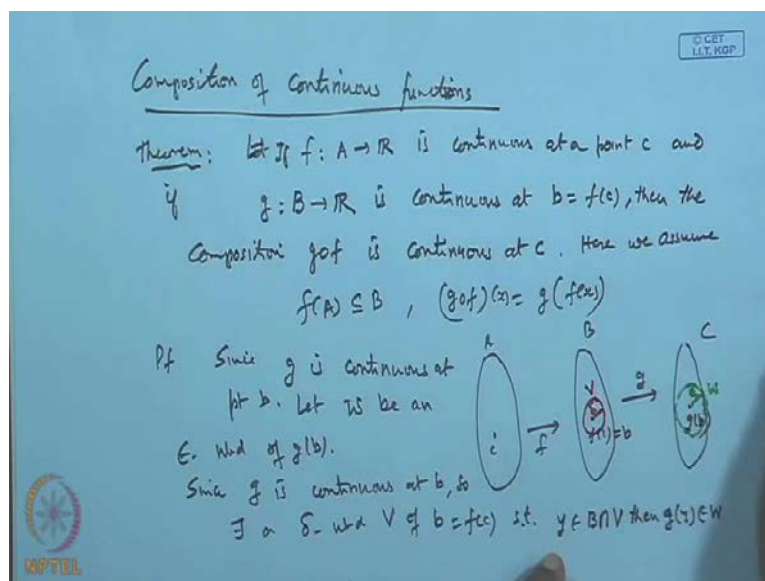 © CET
I.I.T. KGP
Composition of continuous functions
Theorem: Let If f : A → ℝ is continuous at a point c and
if g : B → ℝ is continuous at b = f(c), then the
Composition gof is continuous at c. Here we assume
f(A) ⊆ B , (gof)(x) = g(f(x))
Pf Since g is continuous at
pt b. Let W be an
ε- nbd of g(b).
Since g is continuous at b, so
∃ a δ- nbd V of b = f(c) s.t. y ∈ B∩V then g(y) ∈ W
A
B
C
c
f
V
f(c) = b
g
W
g(b)
NPTEL